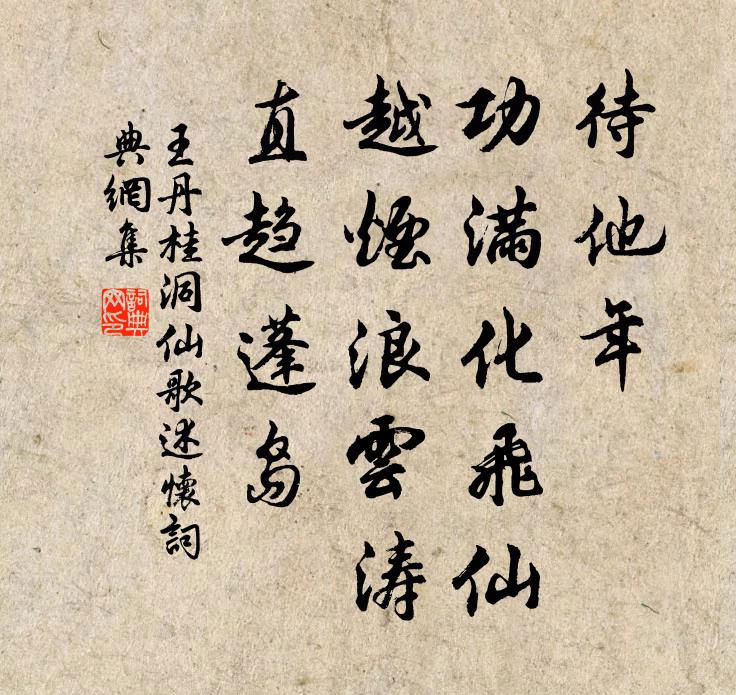 待他年
功满化飛仙
越煙浪雲涛
直趋蓬岛
王丹桂洞仙歌述懷詞
典網集
詞典
网印